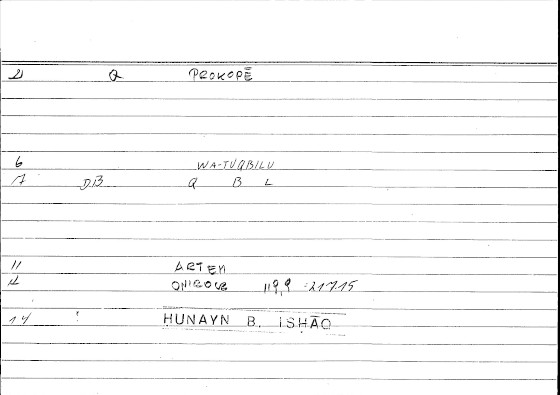 21 Q PROKOPĒ
6 WA-TUQBILU
17 DB Q B L
11 ARTEM
12 ONIROCR 119,9 :21715
14 HUNAYN B. ISHĀQ